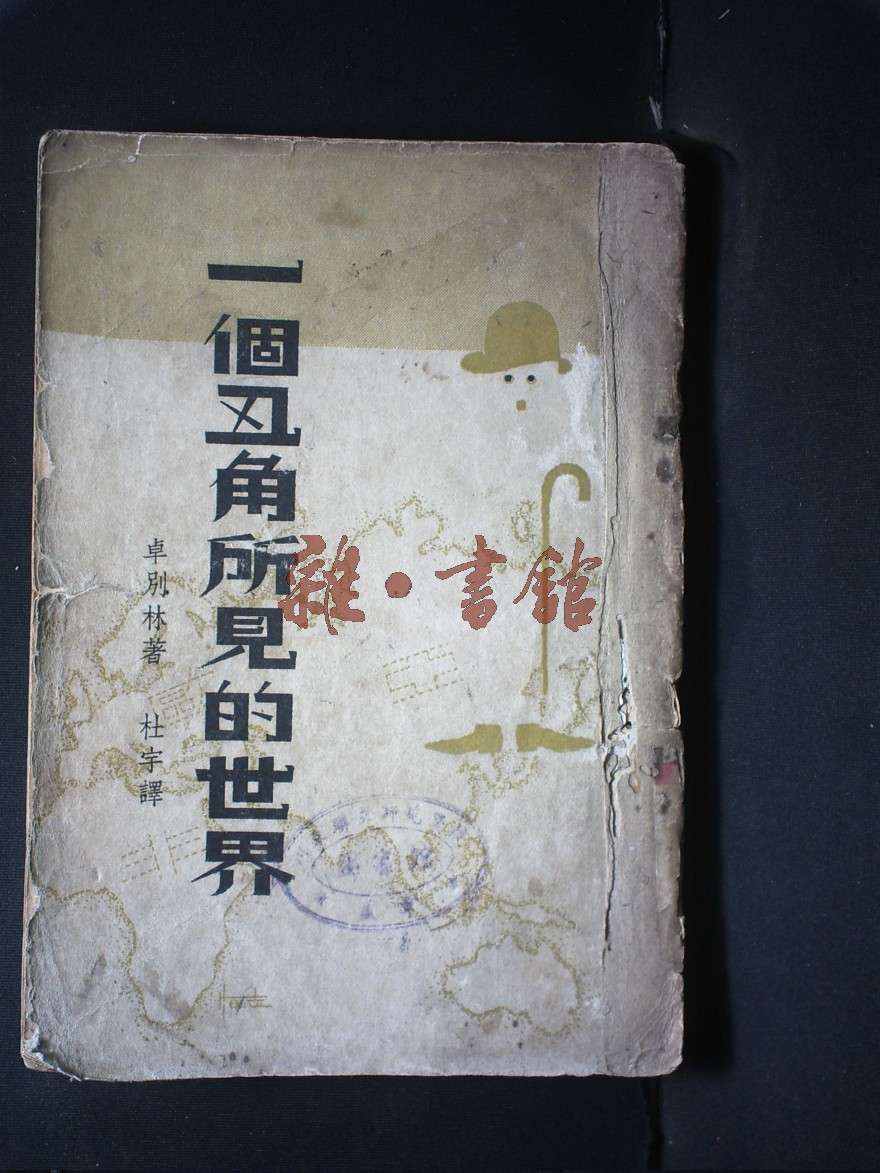 一個丑角所見的世界
卓別林著 杜宇譯
雜·書館